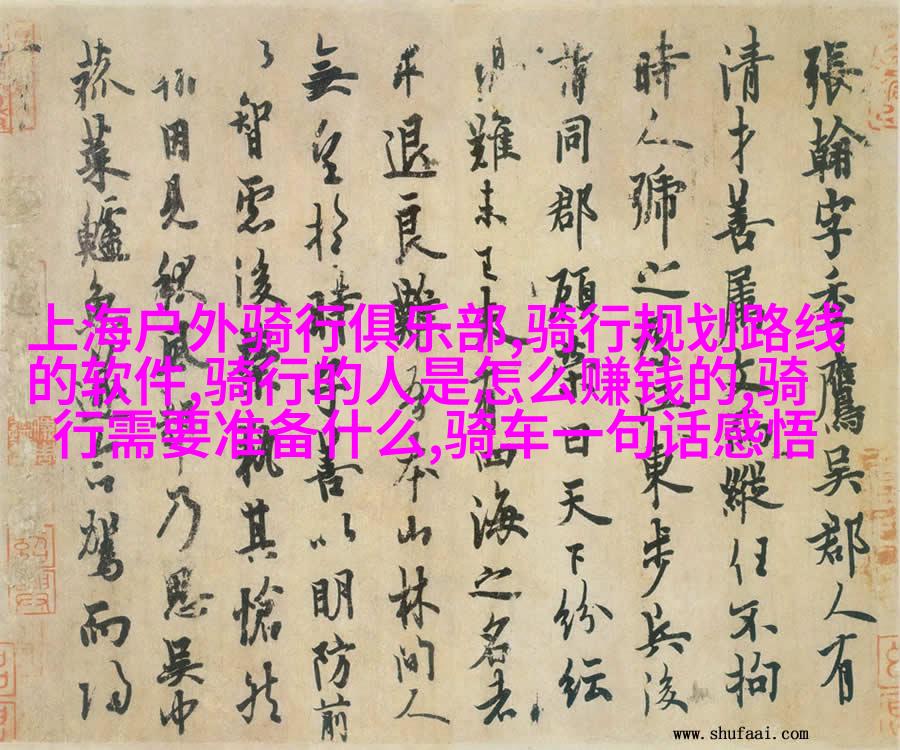 張翰字季鷹吳郡人有
清才善屬文而縱任不拘
時人號之為江東步兵後
同郡顧榮曰天下紛紜
難未已夫有四海之名者
求退良難吾本山林間人
無望於時子善以明防前
以智慮後榮執其愴然
翰因見秋風起乃思吳中
菰菜鱸魚遂命駕而歸
上海户外骑行俱乐部,骑行规划路线
的软件,骑行的人是怎么赚钱的,骑
行需要准备什么,骑车一句话感悟
www.shufaai.com